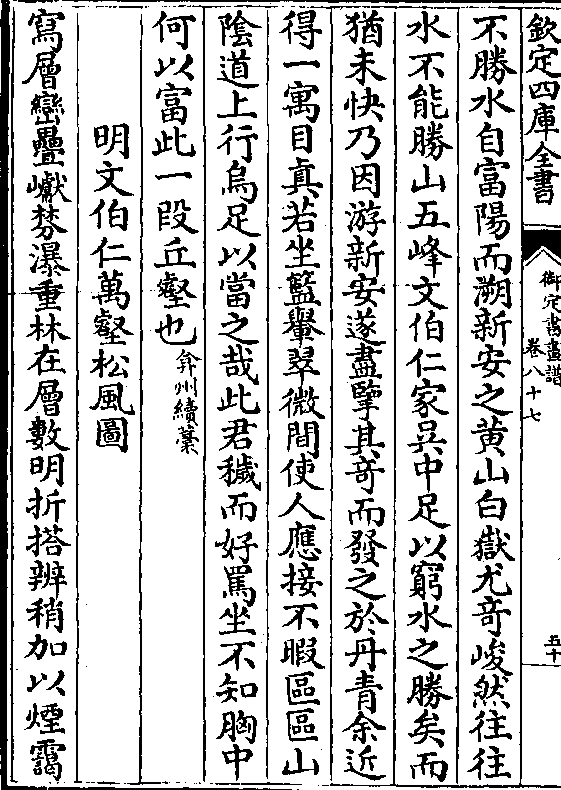 欽定四庫全書
御定書畫譜
卷八十七
五十
不勝水自富陽而溯新安之黄山白嶽尤竒峻然往往
水不能勝山五峰文伯仁家吳中足以窮水之勝矣而
猶未快乃因游新安遂盡孥其竒而發之於丹青余近
得一寓目真若坐籃轝翠微間使人應接不暇區區山
陰道上行烏足以當之哉此君穢而好罵坐不知胸中
何以富此一段丘壑也弇州續藁
明文伯仁萬壑松風圖
寫層巒疊巘棼瀑重林在層數明折搭辨稍加以煙靄